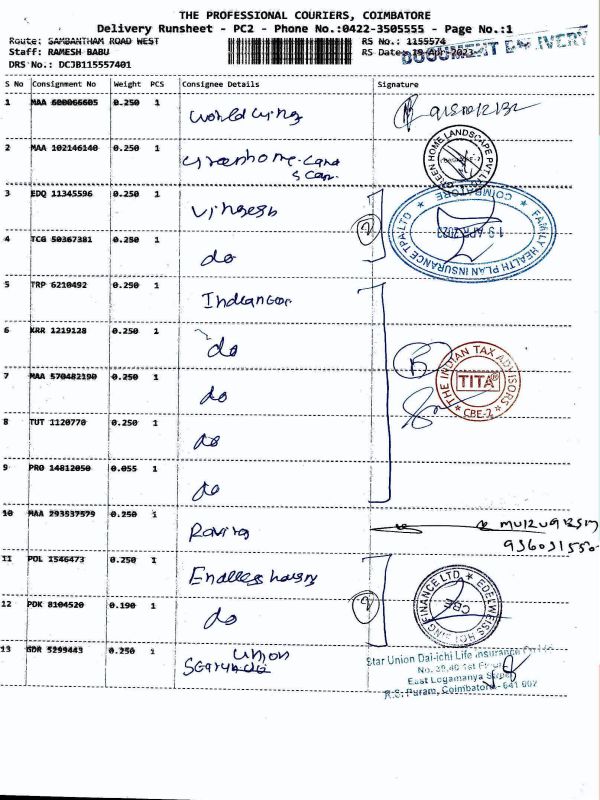 THE PROFESSIONAL COURIERS, COIMBATORE
Delivery Runsheet - PC2 - Phone No.:0422-3505555 - Page No.:1
Route: SAMBANTHAM ROAD WEST
RS No.: 1155574
Staff: RAMESH BABU
RS Date: 19-Apr-2023
DOCUMENT DELIVERY
DRS No.: DCJB115557401
S No Consignment No Weight PCS Consignee Details Signature
1 MAA 600066605 0.250 1
2 MAA 102146140 0.250 1
GREEN HOME LANDSCAPE PVT LTD
3 EDQ 11345596 0.250 1
4 TCG 50367381 0.250 1 do
FAMILY HEALTH PLAN INSURANCE TPA LTD
COIMBATORE
19 APR 2023
5 TRP 6210492 0.250 1
6 KRR 1219128 0.250 1 do
7 MAA 570482190 0.250 1 do
THE INDIAN TAX ADVISORS
TITA®
CBE-2
8 TUT 1120770 0.250 1 do
9 PRO 14812050 0.055 1 do
10 MAA 293537579 0.250 1
11 POL 1546473 0.250 1
12 PDK 8104520 0.190 1 do
EDELWEISS HOUSING FINANCE LTD
CBE
13 GDR 5299443 0.250 1 union
Star Union Dai-ichi Life Insurance Co Ltd
No. 39,40 1st Floor
East Logamanya Street
R.S. Puram, Coimbatore - 641 002